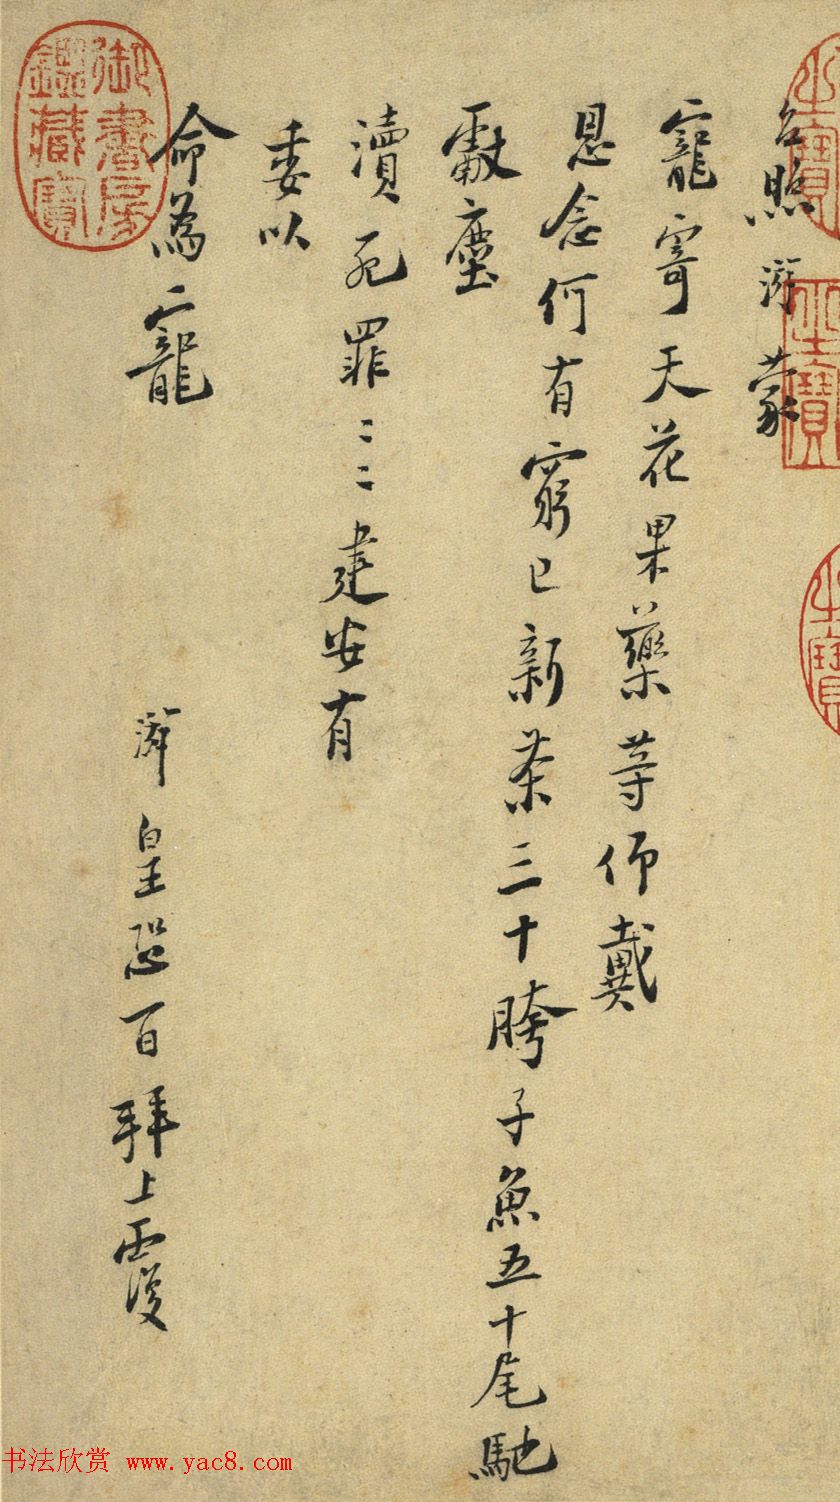 台照游蒙
寵寄天花果藥等仰戴
恩念何有窮已新茶三十胯子魚五十尾馳
獻塵
瀆死罪〻〻建安有
委以
命為寵
游皇恐百拜上覆
御書房鑑藏寶
书法欣赏 www.yac8.com